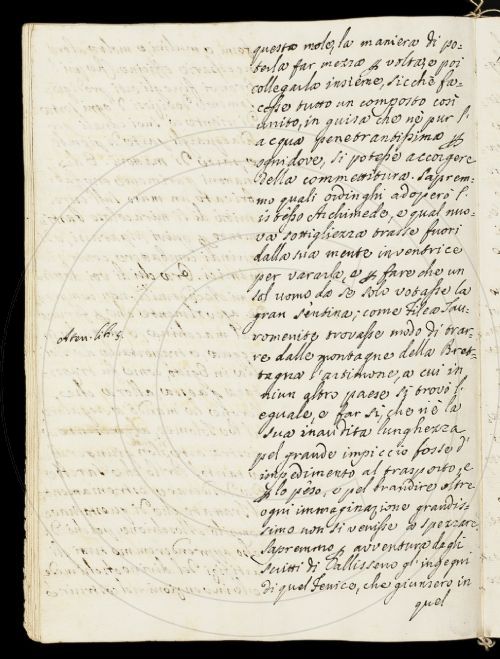 questa mole, la maniera di po-
terla far mezza p volta, e poi
collegarla insieme, sicchè fa-
cesse tutto un composto così
unito, in guisa che nè pur l'
acqua penetrantissima p
ogni dove, si potesse accorgere
della commettitura. Saprem-
mo quali ordinghi adoperò l'
istesso Archimede, e qual nuo-
va sottigliezza trasse fuori
dalla sua mente inventrice
per vararla, e p fare che un
sol uomo da se solo votasse la
gran sentina; come Filea Tau-
romenite trovasse modo di trar-
re dalle montagne della Bret-
tagna l'artimone, a cui in
niun altro paese si trovi l'
eguale, e far sì, che nè la
sua inaudita lunghezza
pel grande impiccio fosse d'
impedimento al trasporto, e
p lo peso, e pel brandire oltre
ogni immaginazione grandis-
simo non si venisse a spezzare.
Sapremmo p avventura dagli
scritti di Callisseno gl'ingegni
di quel Fenice, che giunsero in
quel
Aten. lib. 5.